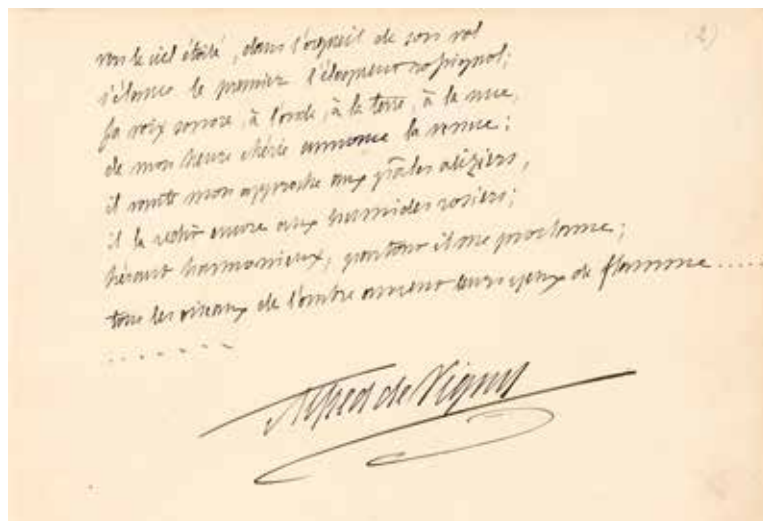 (2)
vers le ciel étoilé, dans l'orgueil de son vol
s'élance le premier l'éloquent rossignol;
sa voix sonore, à l'onde, à la terre, à la nue,
de mon heure chérie annonce la venue;
il vante mon approche aux pâles aliziers,
il la redit encore aux humides rosiers;
héraut harmonieux, partout il me proclame;
tous les oiseaux de l'ombre ouvrent leurs yeux de flamme.....
.......
Alfred de Vigny